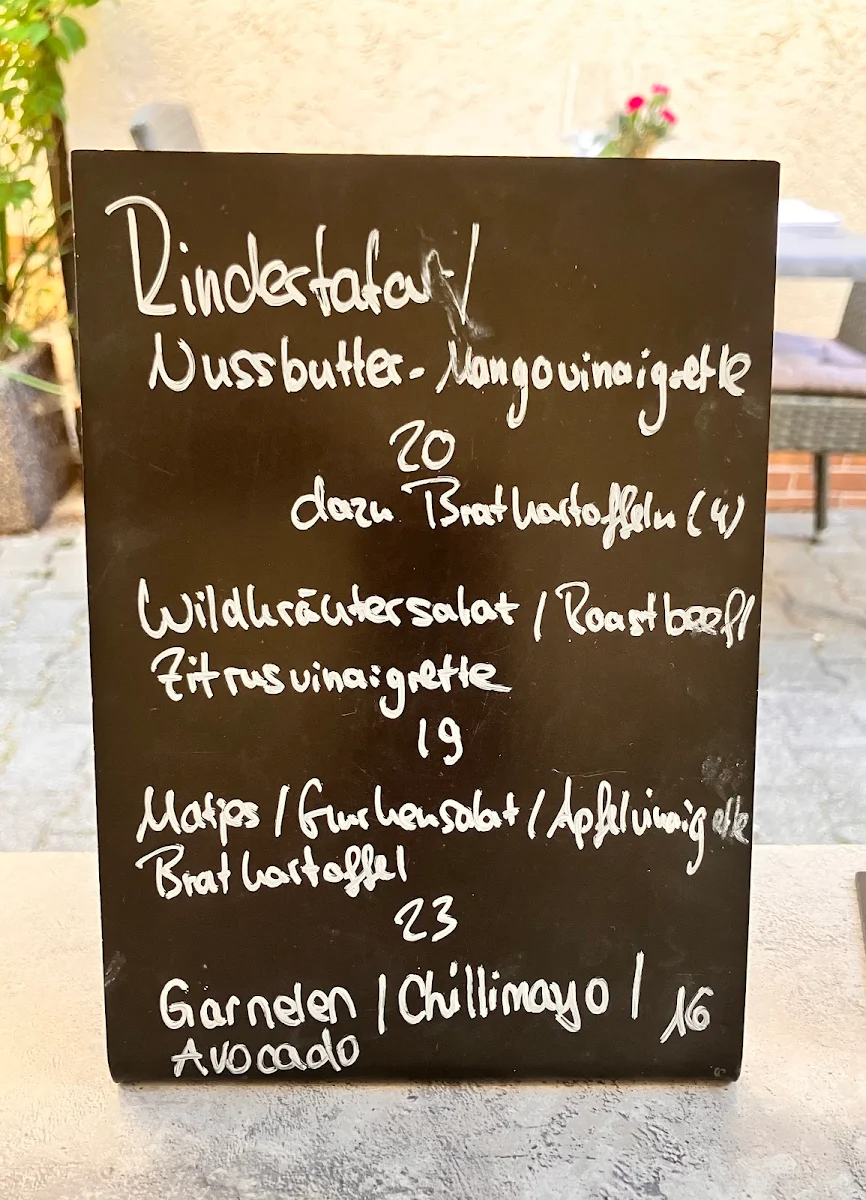 Rindertatar/
Nussbutter-Mangovinaigrette
20
dazu Bratkartoffeln (4)
Wildkräutersalat / Roastbeef/
Zitrusvinaigrette
19
Matjes / Gurkensalat / Apfelvinaigrette
Bratkartoffel
23
Garnelen / Chillimayo / 16
Avocado